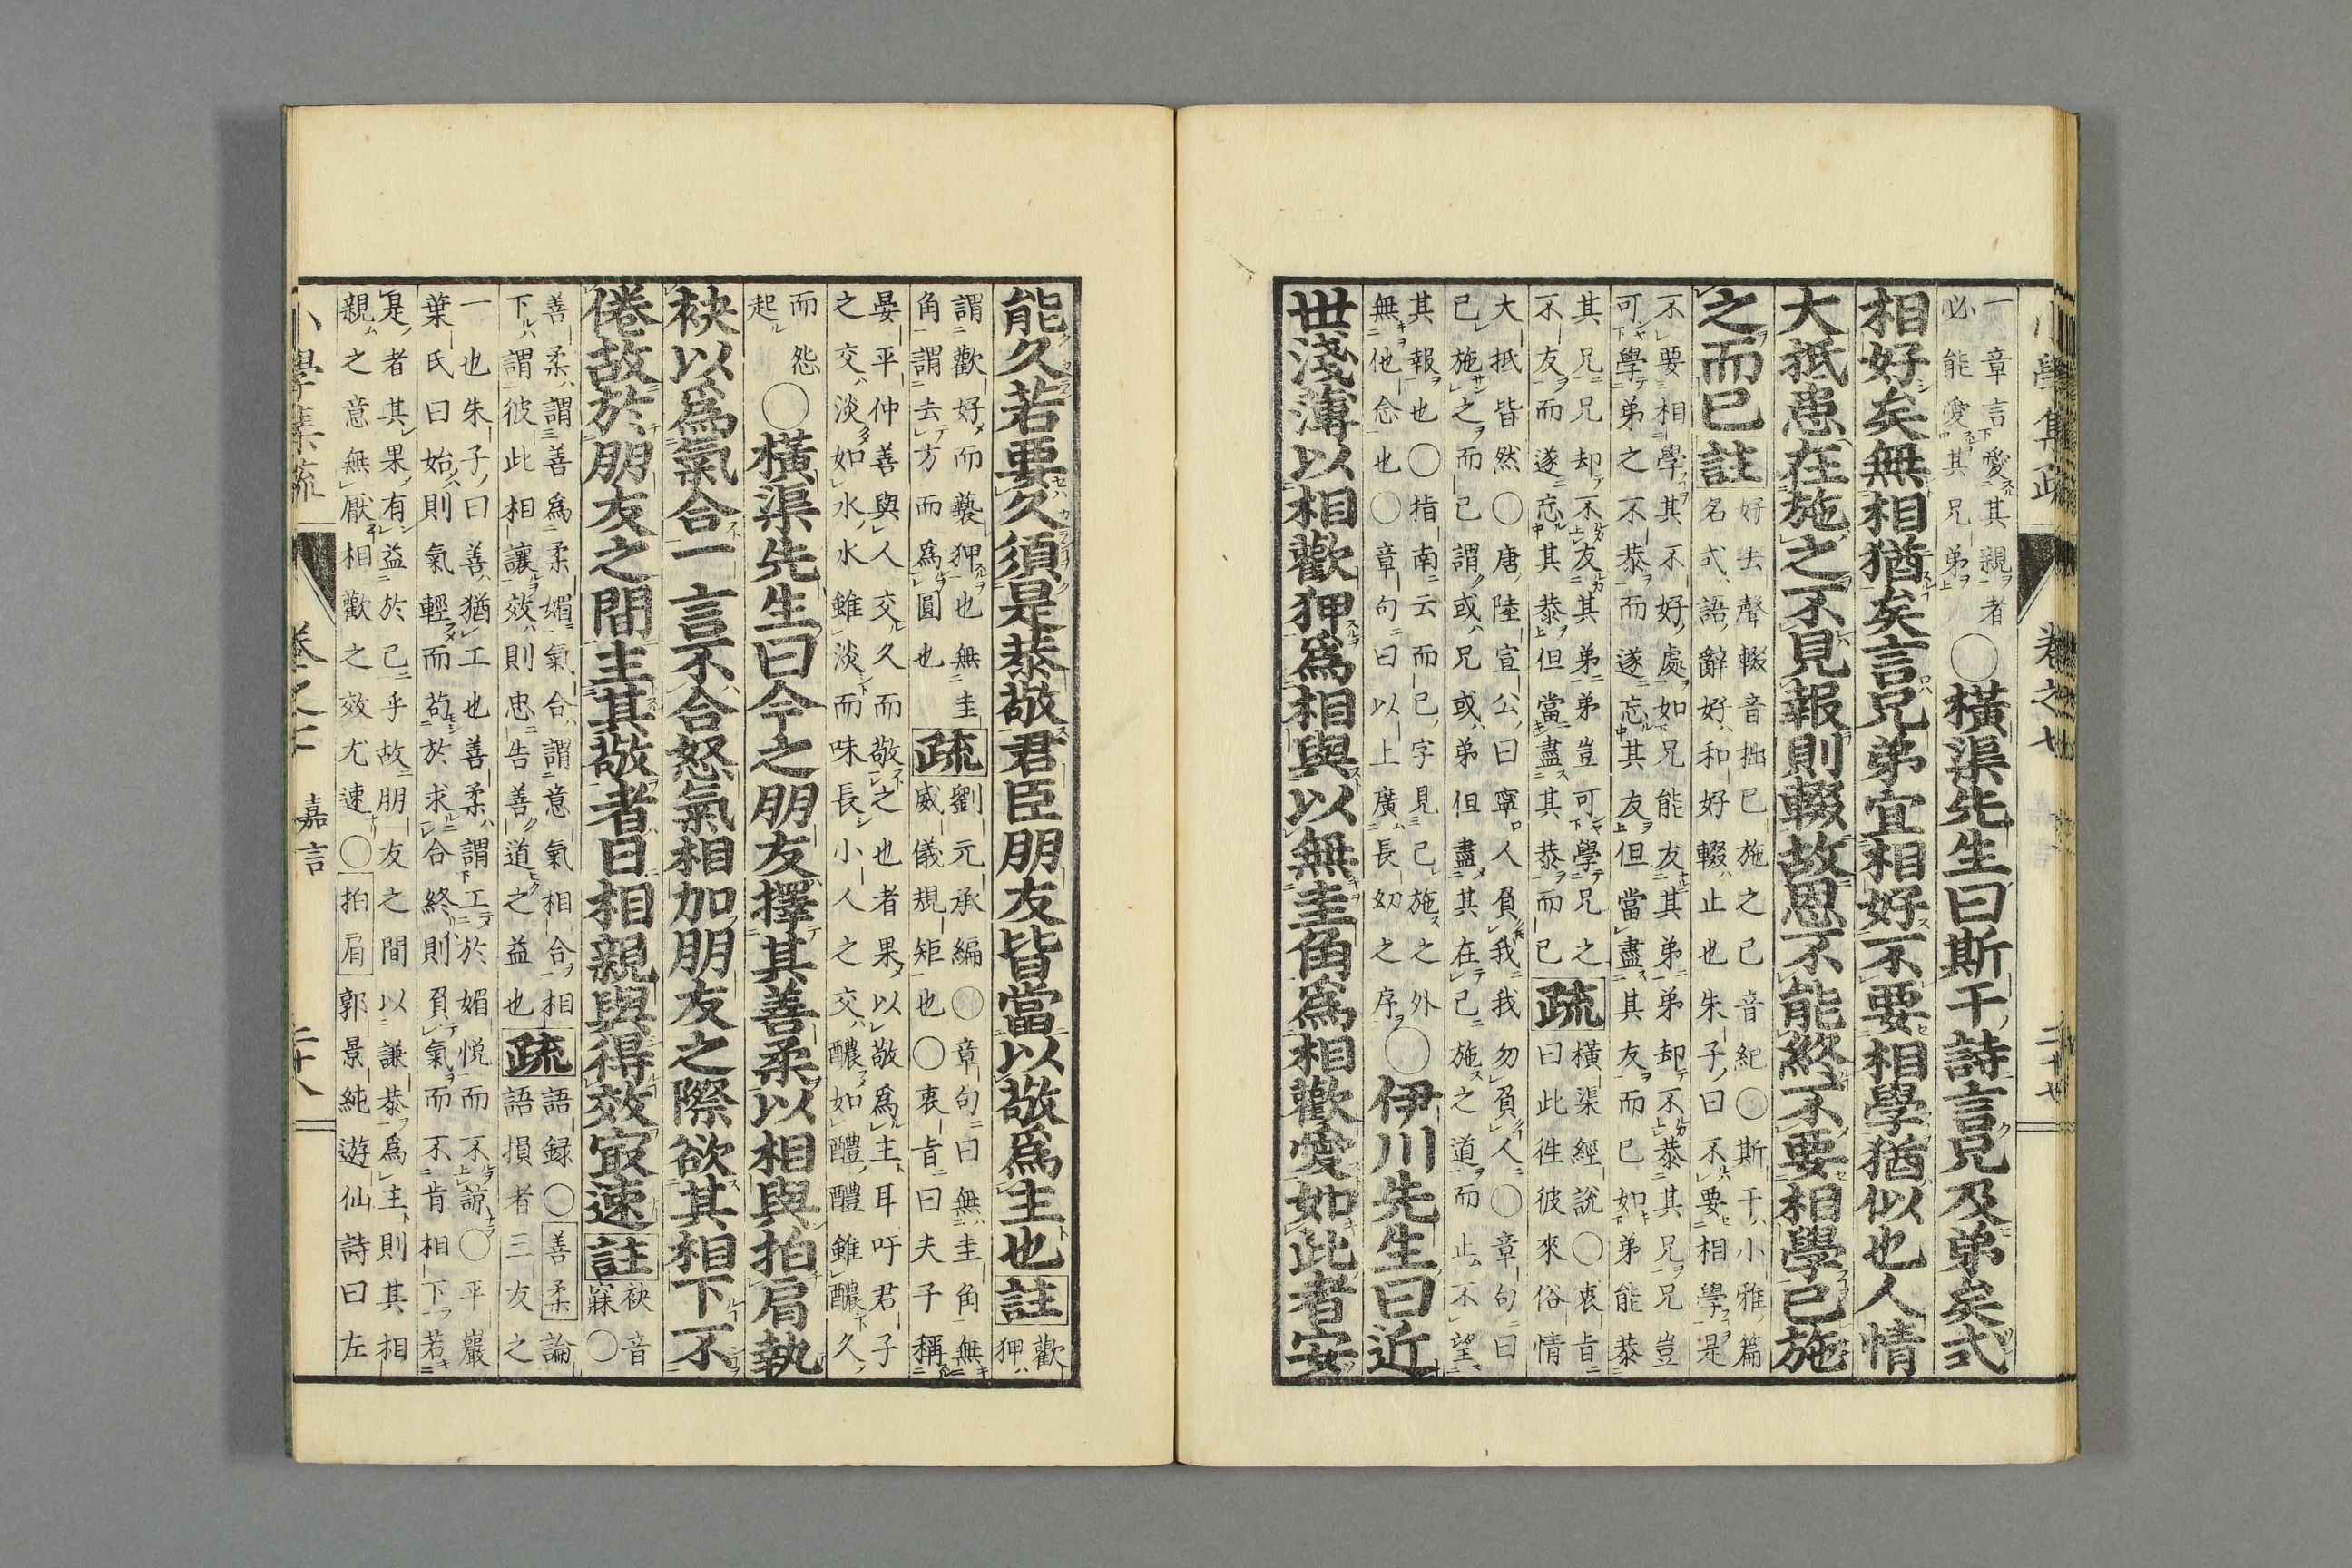 小學集疏 卷之七 二十七
一章言愛其親者
必能愛其兄弟
○橫渠先生曰斯干詩言兄及弟矣式
相好矣無相猶矣言兄弟宜相好不要相學猶似也人情
大抵患在施之不見報則輟故恩不能終不要相學己施
之而已註
好去聲輟音拙已施之已音紀○斯干小雅篇
名式語辭好和好輟止也朱子曰不要相學是
不要相學其不好處如兄能友其弟弟却不恭其兄兄豈
可學弟之不恭而遂忘其友但當盡其友而已如弟能恭
其兄兄却不友其弟弟豈可學兄之
不友而遂忘其恭但當盡其恭而已
疏
橫渠經說○衷旨
曰此徃彼來俗情
大抵皆然○唐陸宣公曰寧人負我我勿負人○章句曰
已施之而已謂或兄或弟但盡其在已施之道而止不望
其報也○指南云而已字見已施之外
無他念也○章句曰以上廣長幼之序
○伊川先生曰近
世淺薄以相歡狎爲相與以無圭角爲相歡愛如此者安
能久若要久須是恭敬君臣朋友皆當以敬爲主也註
歡
狎
謂歡好而褻狎也無圭角無
角謂去方而爲圓也
疏
劉元承編○章句曰無圭角
威儀規矩也○衷旨曰夫子稱
晏平仲善與人交久而敬之也者果以敬爲主耳吁君子
之交淡如水水雖淡而味長小人之交醲如醴醴雖醲久
而怨
起
○橫渠先生曰今之朋友擇其善柔以相與拍肩執
袂以爲氣合一言不合怒氣相加朋友之際欲其相下不
倦故於朋友之間主其敬者日相親與得效㝡速註
袂音
寐○
善柔謂善爲柔媚氣合謂意氣相合相
下謂彼此相讓效則忠告善道之益也
疏
語録○善柔論
語損者三友之
一也朱子曰善猶工也善柔謂工於媚悅而不諒○平巖
葉氏曰始則氣輕而苟於求合終則負氣而不肯相下若
是者其果有益於己乎故朋友之間以謙恭爲主則其相
親之意無厭相歡之效尤速○拍肩郭景純遊仙詩曰左
小學集疏 卷之七 嘉言 二十八